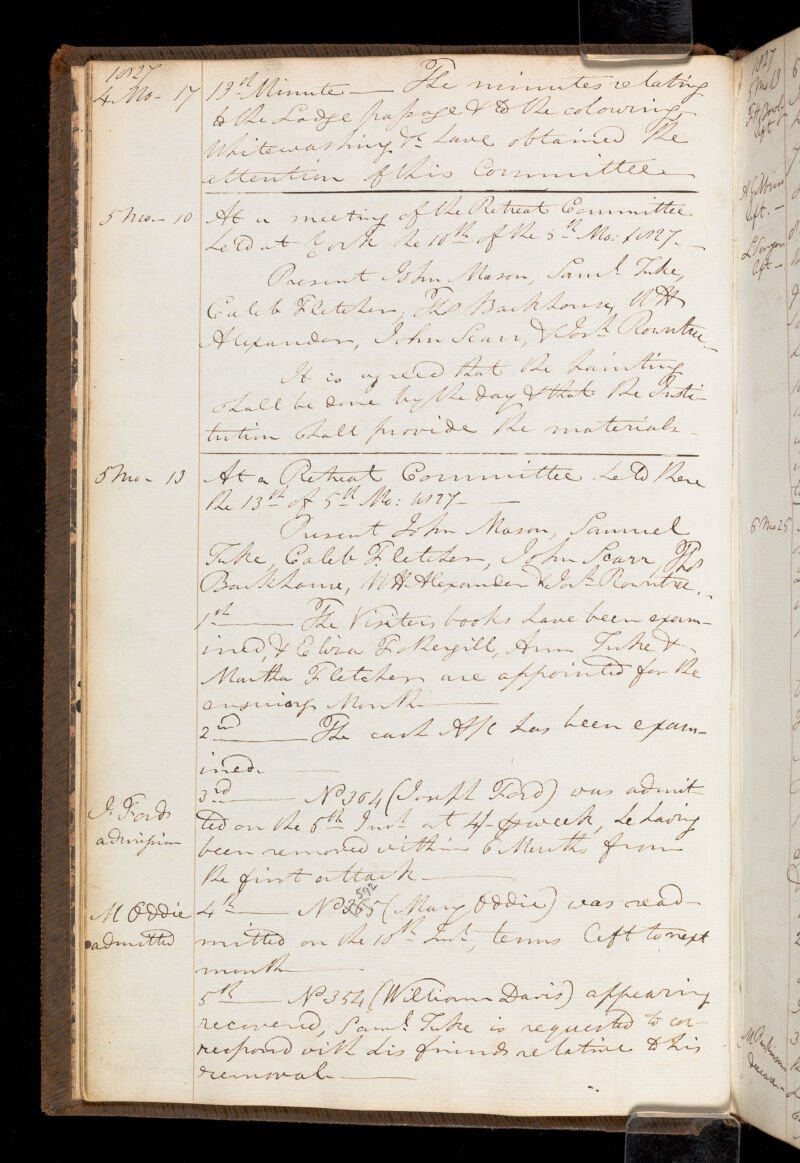 1827
4 Mo- 17
13th Minute — The minutes relating
to the Lodge passage & to the colouring
Whitewashing &c have obtained the
attention of this Committee
5 mo- 10
At a meeting of the Retreat Committee
held at York the 10th of the 5th Mo: 1827. —
Present John Mason, Saml. Tuke,
Caleb Fletcher, Thos Backhouse, WH
Alexander, John Scarr, & Josh. Rowntree —
It is agreed that the Painting
shall be done by the day & that the Insti-
tution shall provide the materials
5 mo- 13
At a Retreat Committee held there
the 13th of 5th Mo: 1827 —
Present John Mason, Samuel
Tuke, Caleb Fletcher, John Scarr, Thos
Backhouse, WH. Alexander & Josh. Rowntree.
1st — The Visiters books have been exam-
ined, & Eliza Fothergill, Ann Tuke &
Martha Fletcher are appointed for the
ensuing Month —
2nd — The cash A/c has been exam-
ined. —
J. Fords
admission
3rd — No 364 (Joseph Ford) was admit-
ted on the 6th Inst. at 4/- p week, he having
been removed within 6 Months from
the first attack —
592
M Oddie
admitted
4th — No 365 (Mary Oddie) was read-
mitted on the 10th Inst., terms left to next
month —
5th — No 354 (William Davis) appearing
recovered, Saml. Tuke is requested to cor-
respond with his friends relative to his
removal. —
1827
5 Mo 13
left
left. —
left —
6 Mo 25
M Parkinsons
decease —